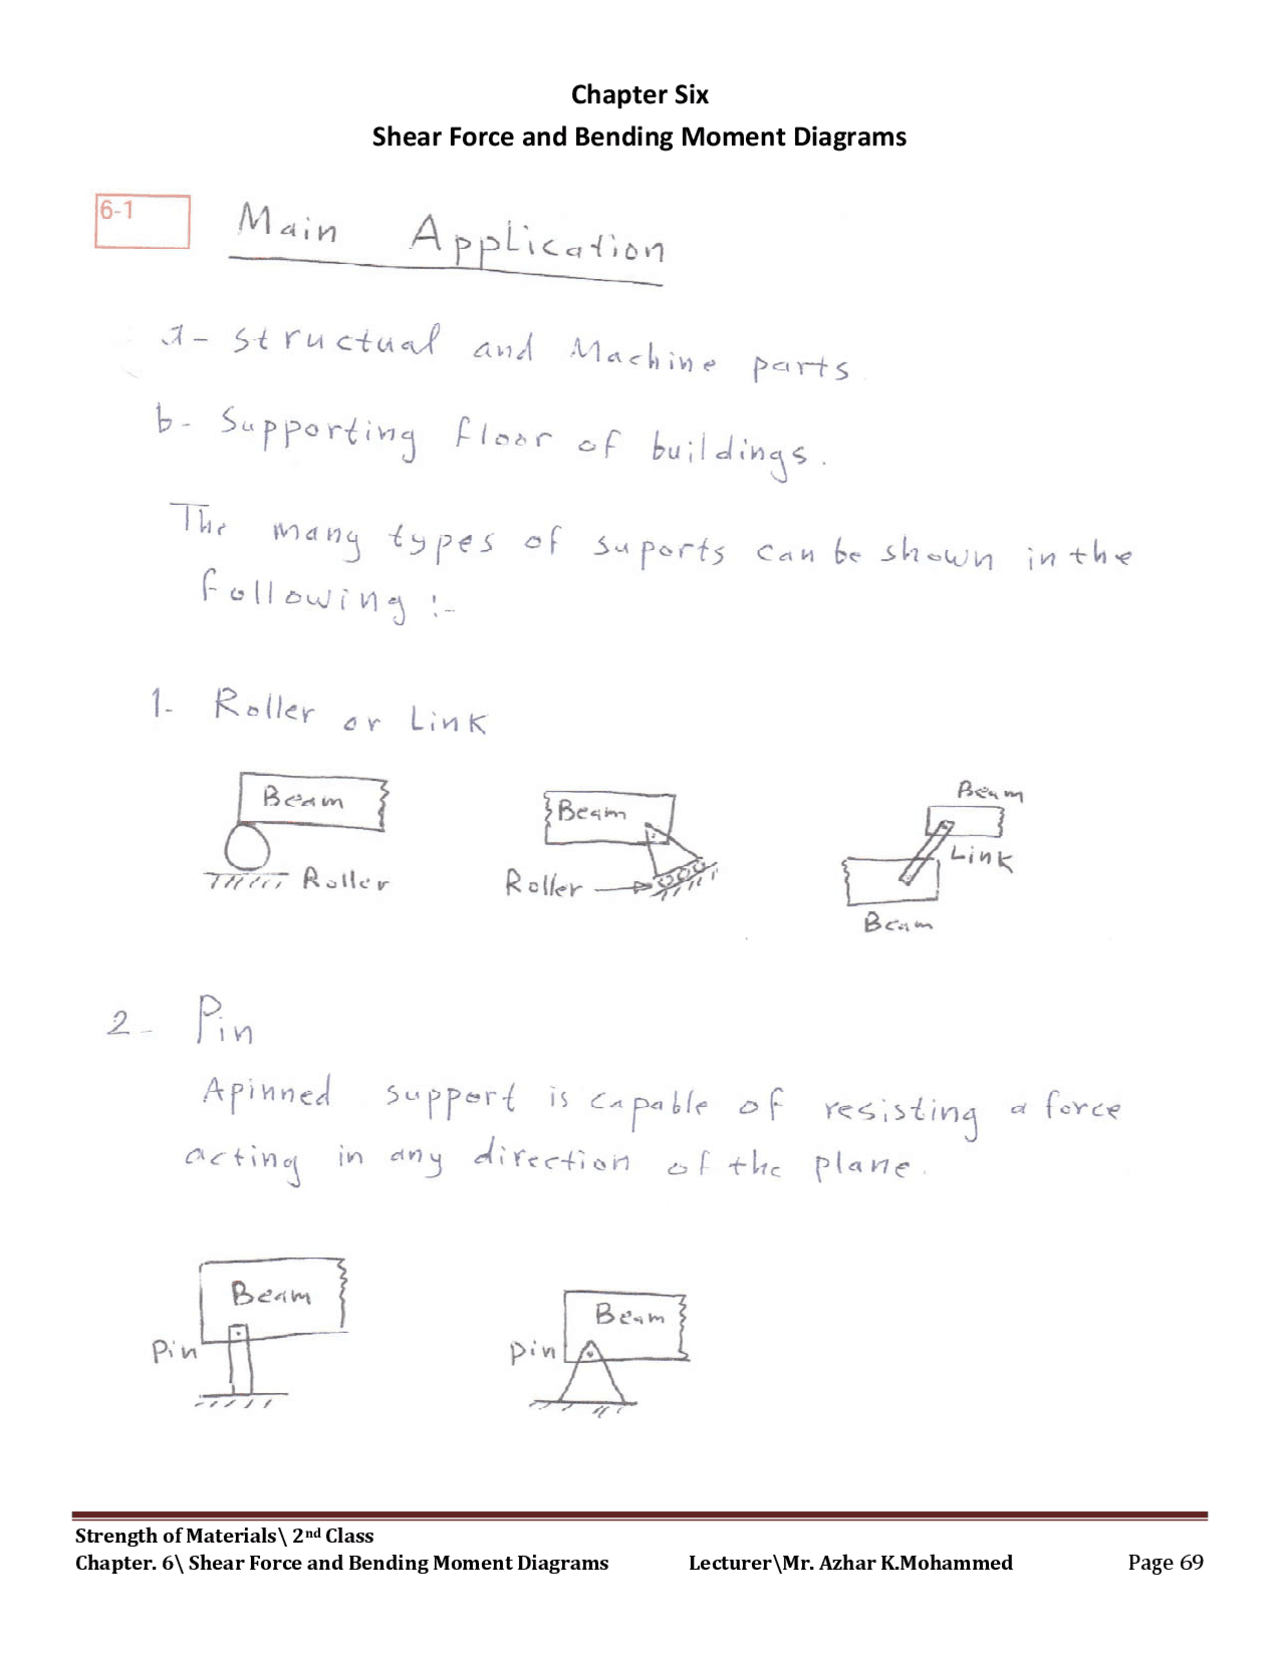 Chapter Six
Shear Force and Bending Moment Diagrams
6-1
Main Application
a- Structual and Machine parts
b- Supporting floor of buildings.
The many types of suports can be shown in the
following :-
1- Roller or Link
Beam
Roller
Beam
Roller
Beam
Link
Beam
2- Pin
Apinned support is capable of resisting a force
acting in any direction of the plane.
Beam
Pin
Beam
pin
Strength of Materials\ 2nd Class
Chapter. 6\ Shear Force and Bending Moment Diagrams Lecturer\Mr. Azhar K.Mohammed Page 69